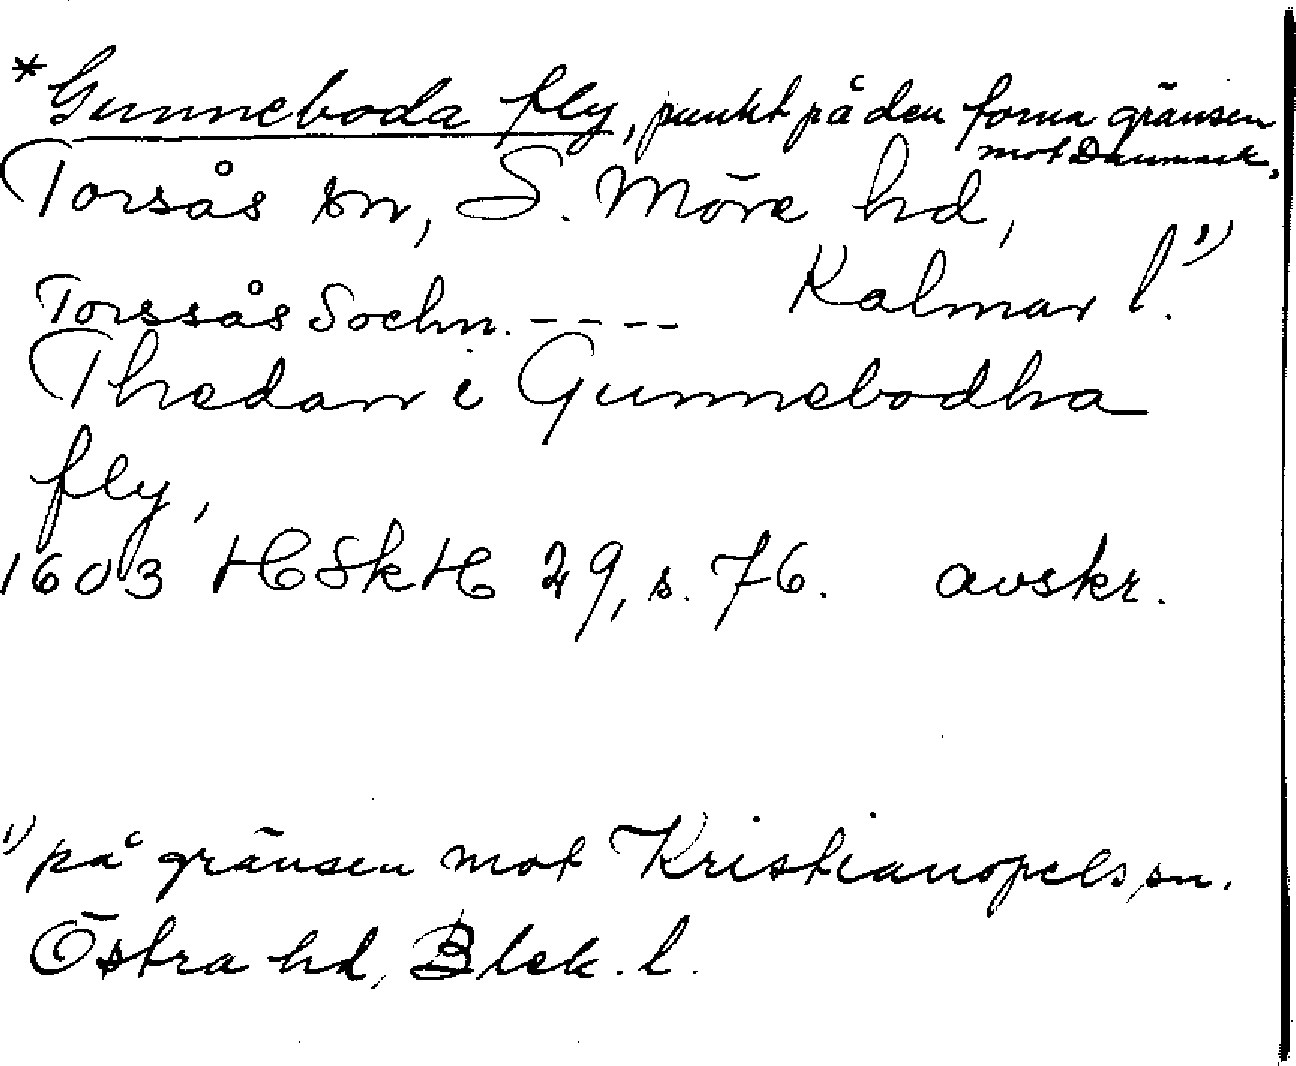 *Gunneboda fly, punkt på den forna gränsen
mot Danmark.
Torsås sn, S. Möre hd,
Kalmar l.¹⁾
Torssås Sochn. ----
Thedan i Gunnebodha
fly,
1603 HSkH 29, s. 76. avskr.
¹⁾ på gränsen mot Kristianopels sn.
Östra hd, Blek. l.